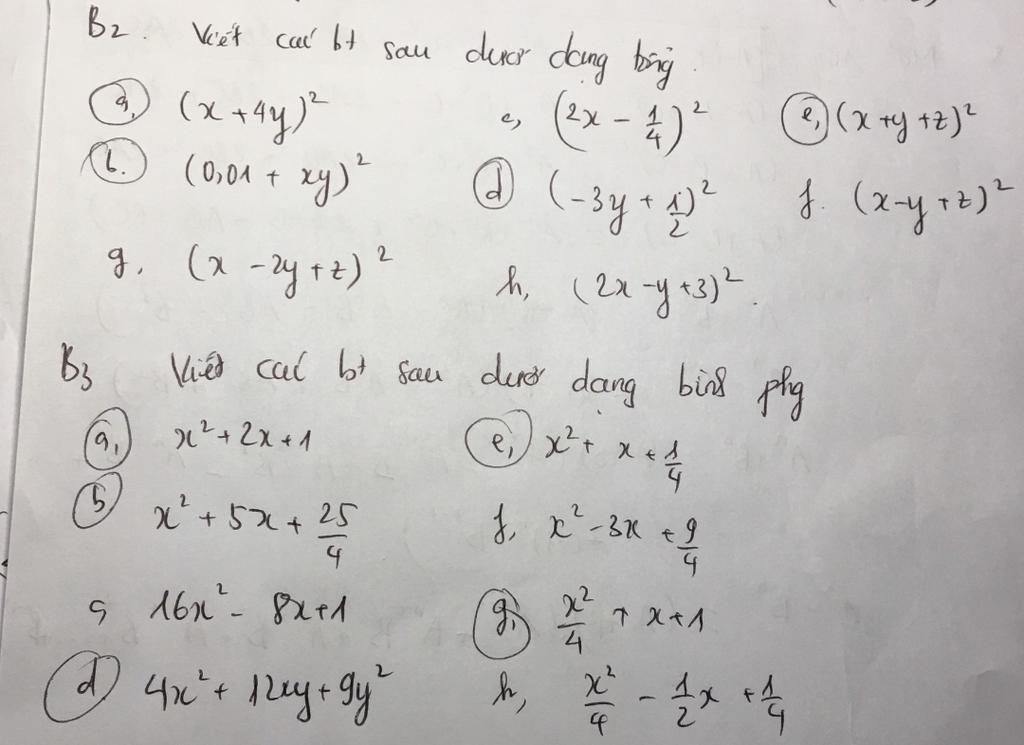 B2. Viết các bt sau dưới dạng tổng.
a, (x + 4y)² c, (2x - 1/4)² e, (x + y + z)²
b. (0,01 + xy)² d (-3y + 1/2)² f. (x - y + z)²
g, (x - 2y + z)² h, (2x - y + 3)².
B3 Viết các bt sau dưới dạng bình phg
a, x² + 2x + 1 e, x² + x + 1/4
b x² + 5x + 25/4 f, x² - 3x + 9/4
c, 16x² - 8x + 1 g, x²/4 + x + 1
d 4x² + 12xy + 9y² h, x²/4 - 1/2x + 1/4